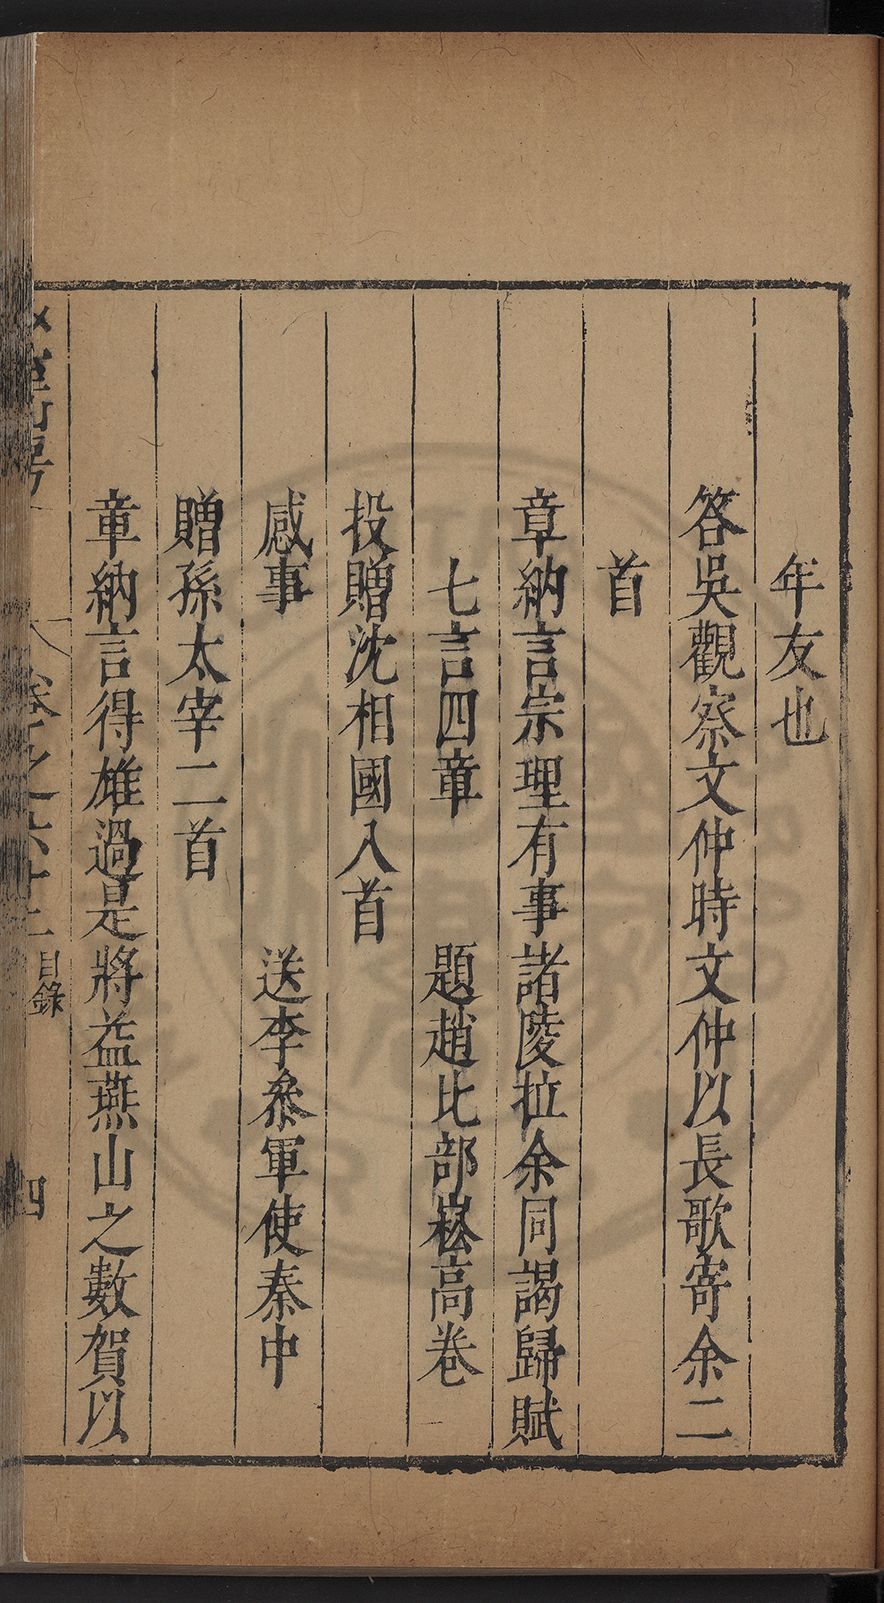 年友也
答吳觀察文仲時文仲以長歌寄余二
首
章納言宗理有事諸陵拉余同謁歸賦
七言四章 題趙比部崧高卷
投贈沈相國八首
感事 送李叅軍使秦中
贈孫太宰二首
章納言得雄過是將益燕山之數賀以
卷之六十 目錄 四